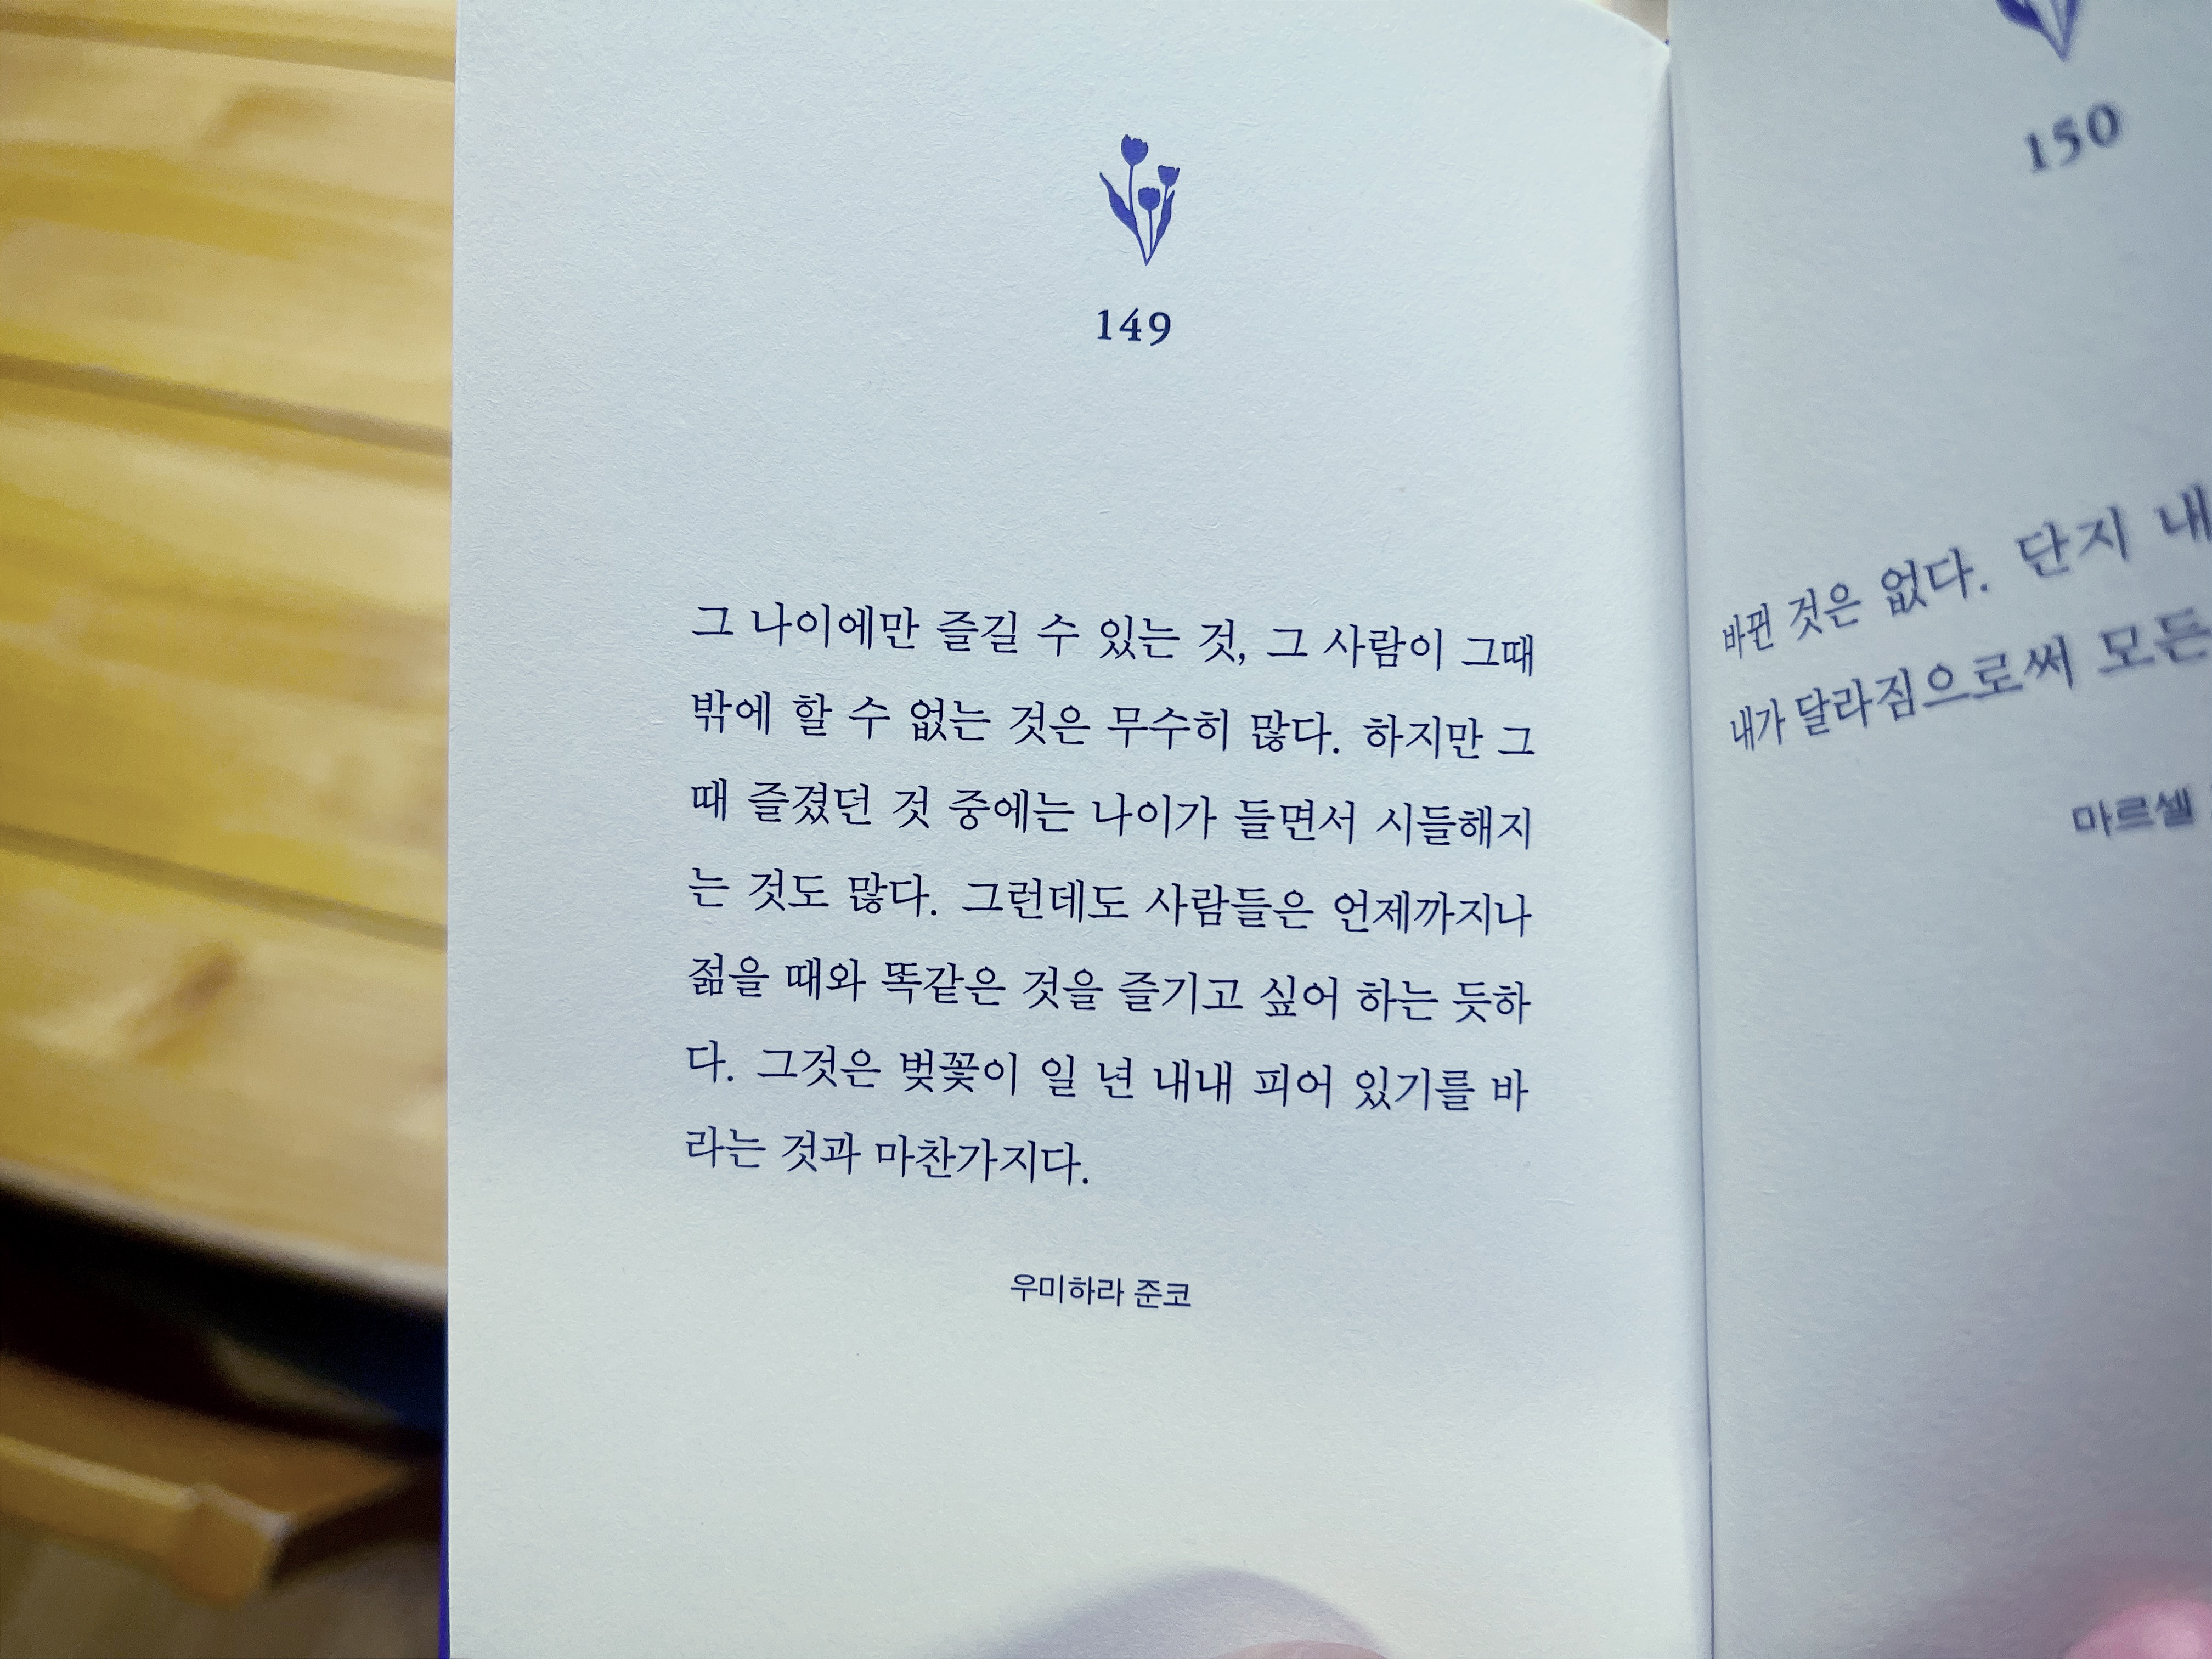 149
그 나이에만 즐길 수 있는 것, 그 사람이 그때
밖에 할 수 없는 것은 무수히 많다. 하지만 그
때 즐겼던 것 중에는 나이가 들면서 시들해지
는 것도 많다. 그런데도 사람들은 언제까지나
젊을 때와 똑같은 것을 즐기고 싶어 하는 듯하
다. 그것은 벚꽃이 일 년 내내 피어 있기를 바
라는 것과 마찬가지다.
우미하라 준코
150
바뀐 것은 없다. 단지 내
내가 달라짐으로써 모든
마르셀